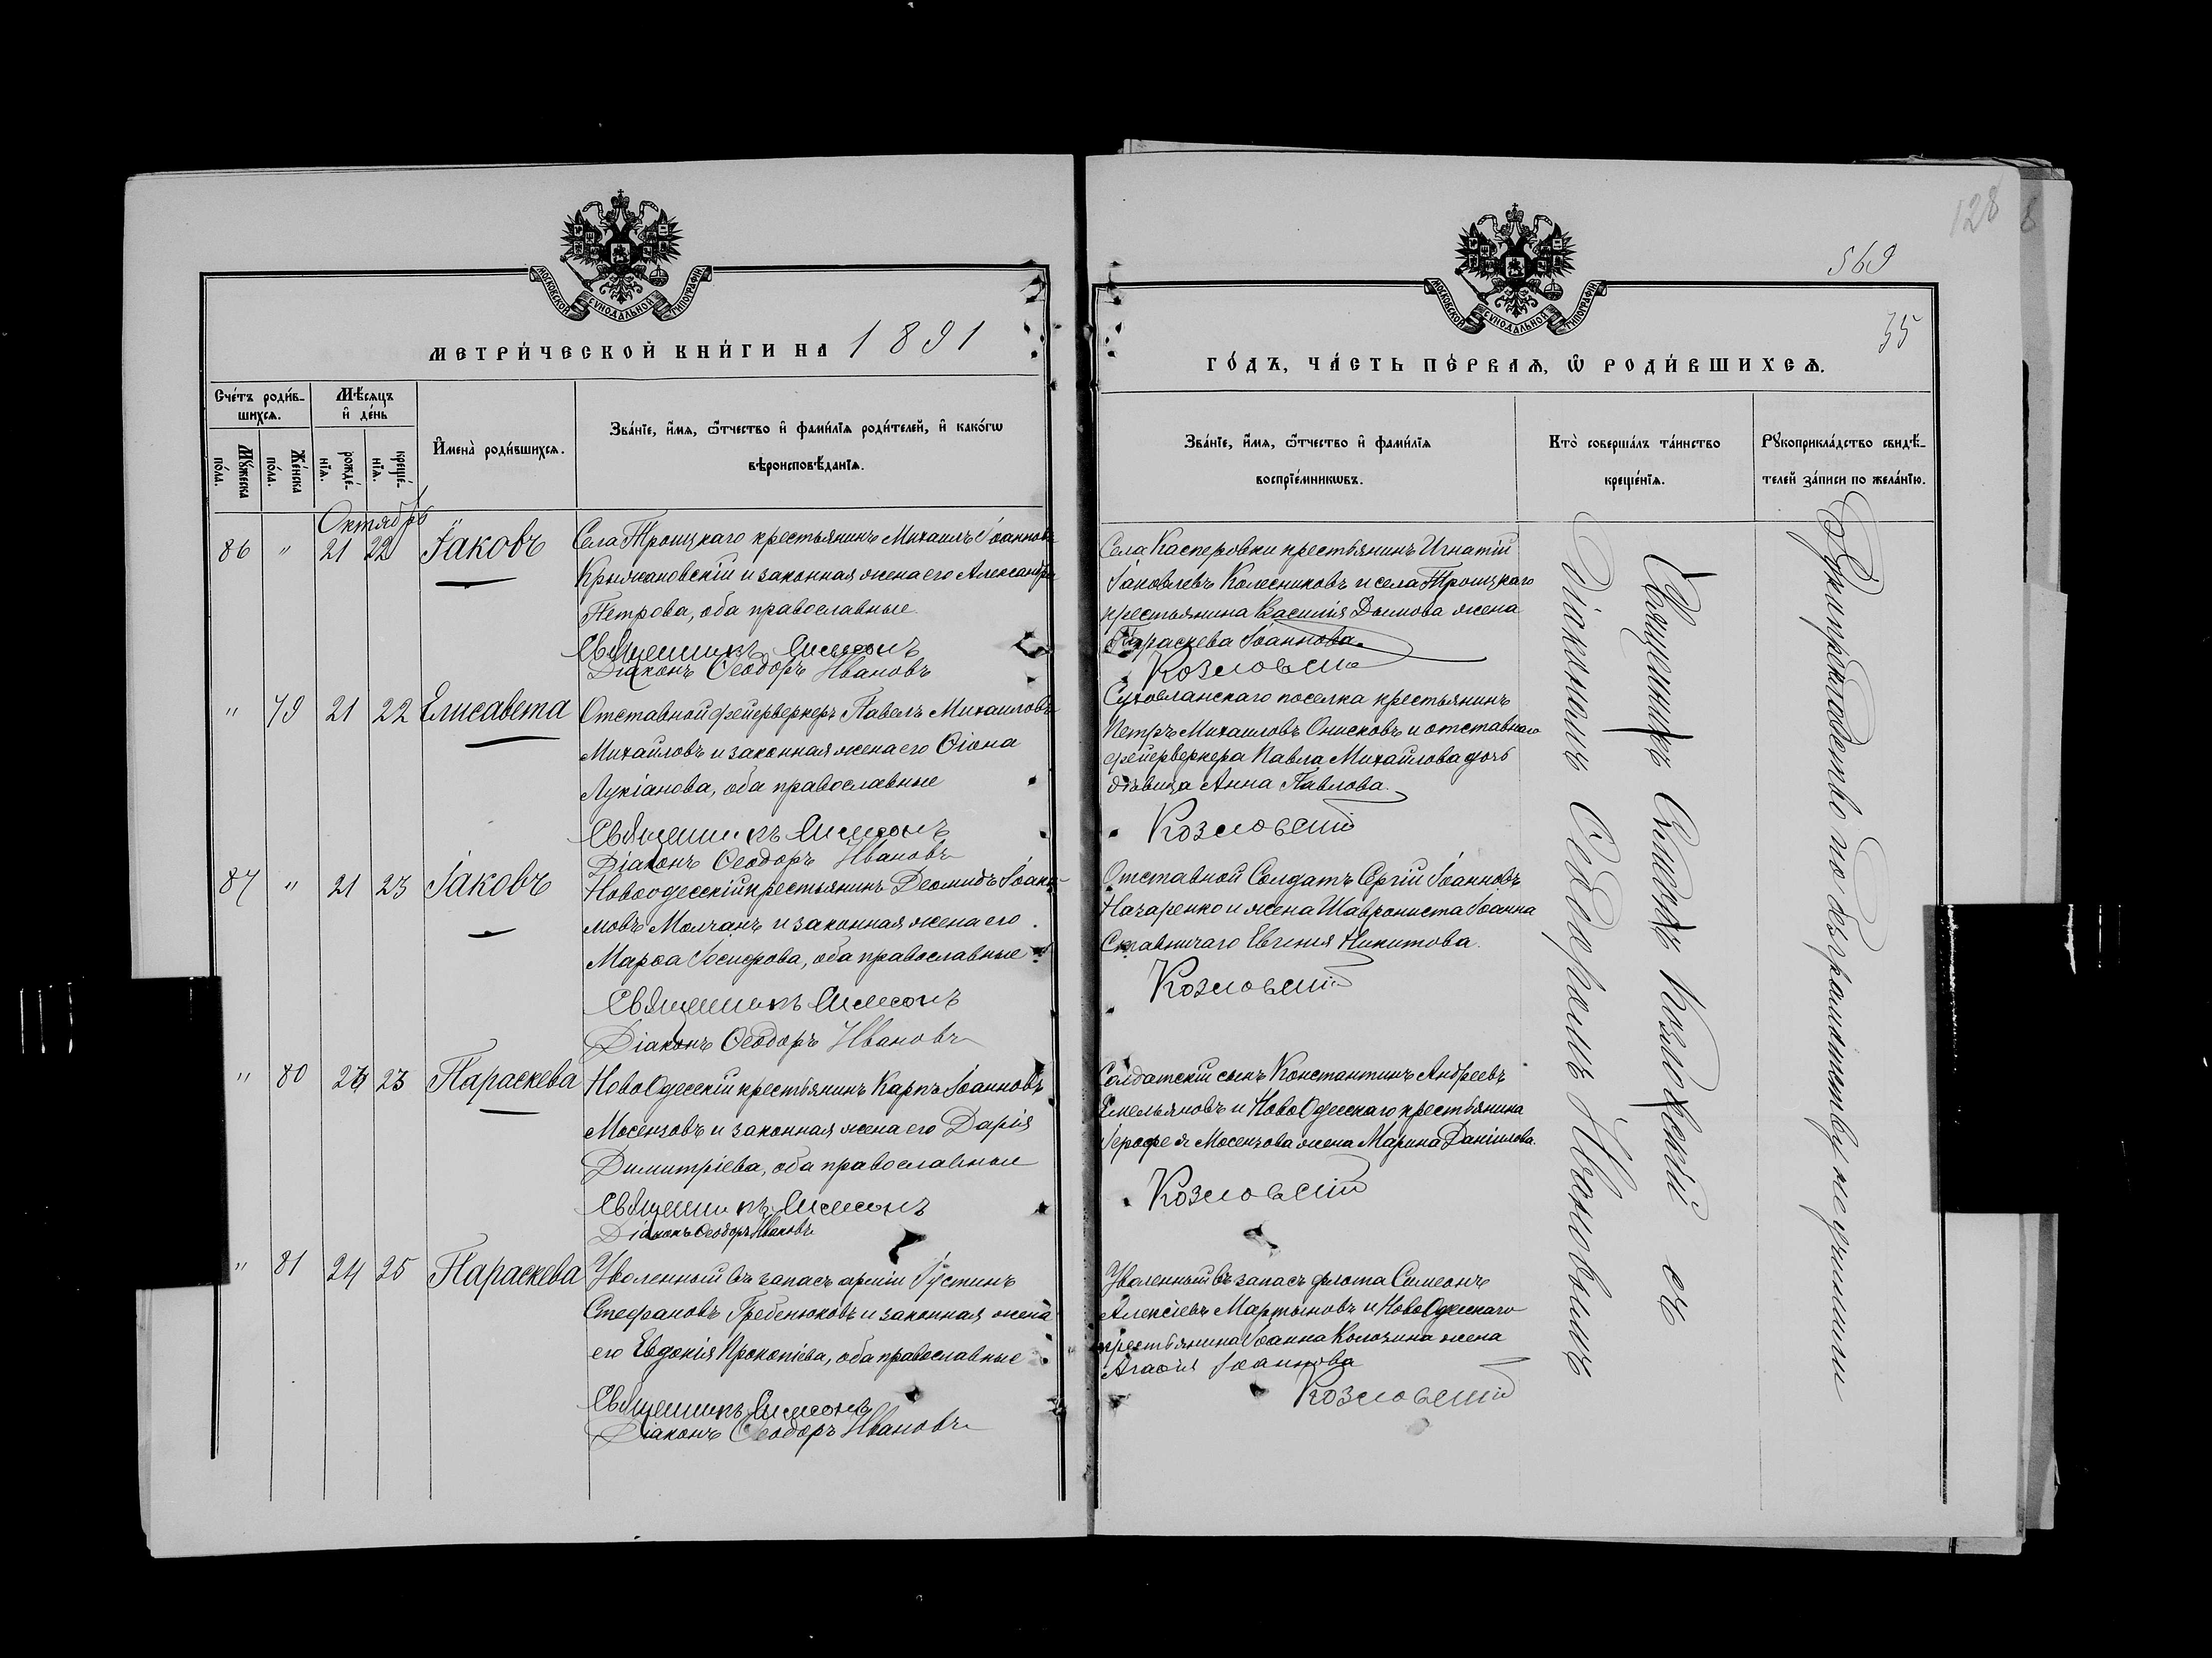 128
569
35
МОСКОВСКОЙ СѴНОДАЛЬНОЙ ТИПОГРАФІИ
МЕТРИ́ЧЕСКОЙ КНИ́ГИ НА 1891
МОСКОВСКОЙ СѴНОДАЛЬНОЙ ТИПОГРАФІИ
ГО́ДЪ, ЧА́СТЬ ПЕ́РВАЯ, Ѿ РОДИ́ВШИХСЯ.
Сче́тъ роди́в-
шихся.
Му́жеска
по́ла.
Же́нска
по́ла.
Мѣ́сяцъ
и҆ де́нь
рожде́-
нїя.
креще́-
нїя.
И҆мена̀ роди́вшихся.
Зва́нїе, и҆́мя, ѻ҆́тчество и҆ фами́лїя роди́телей, и҆ како́гѡ
вѣроисповѣ́данїя.
Зва́нїе, и҆́мя, ѻ҆́тчество и҆ фами́лїя
воспрїе́мникѡвъ.
Кто̀ соверша́лъ та́инство
креще́нїя.
Рꙋкоприкла́дство свидѣ́-
телей за́писи по жела́нїю.
Октябрь
86 " 21 22 Іаковъ
Села Троицкаго крестьянинъ Михаилъ Іоанновъ
Крыжановскій и законная жена его Александра
Петрова, оба православные.
Священникъ Симеонъ
Діаконъ Ѳеодоръ Ивановъ
Села Касперовки крестьянинъ Игнатій
Іаковлевъ Колесниковъ и села Троицкаго
крестьянина Василія Дымова жена
Параскева Іоаннова.
Козловскій
" 79 21 22 Елисавета
Отставной фейерверкеръ Павелъ Михаиловъ
Михайловъ и законная жена его Ѳіона
Лукіанова, оба православные
Священникъ Симеонъ
Діаконъ Ѳеодоръ Ивановъ
поселка крестьянинъ
Петръ Михаиловъ Онисковъ и отставнаго
фейерверкера Павла Михайлова дочь
дѣвица Анна Павлова.
Козловскій
87 " 21 23 Іаковъ
Новоодесскій крестьянинъ Деомидъ Іоан-
новъ Молчанъ и законная жена его
Марѳа Іосифова, оба православные
Священникъ Симеонъ
Діаконъ Ѳеодоръ Ивановъ
Отставной Солдатъ Сергій Іоанновъ
Назаренко и жена Іоанна
Ставничаго Евгенія Никитова.
Козловскій
" 80 23 23 Параскева
НовоОдесскій крестьянинъ Карпъ Іоанновъ
Мосензовъ и законная жена его Дарія
Димитріева, оба православные
Священникъ Симеонъ
Діаконъ Ѳеодоръ Ивановъ
Солдатскій сынъ Константинъ Андреевъ
Емельяновъ и НовоОдесскаго крестьянина
Іерофея Мосензова жена Марина Даніилова.
Козловскій
" 81 24 25 Параскева
Уволенный въ запасъ арміи Іустинъ
Стефановъ Гребенюковъ и законная жена
его Евдокія Прокопіева, оба православные
Священникъ Симеонъ
Діаконъ Ѳеодоръ Ивановъ
Уволенный въ запасъ флота Симеонъ
Алексіевъ Мартыновъ и НовоОдесскаго
крестьянина Іоанна Колозина жена
Агаѳія Іоаннова
Козловскій
Священникъ Симеонъ Козловскій съ
Діакономъ Ѳеодоромъ Ивановымъ
Рукоприкладство по безграмотству не учинили